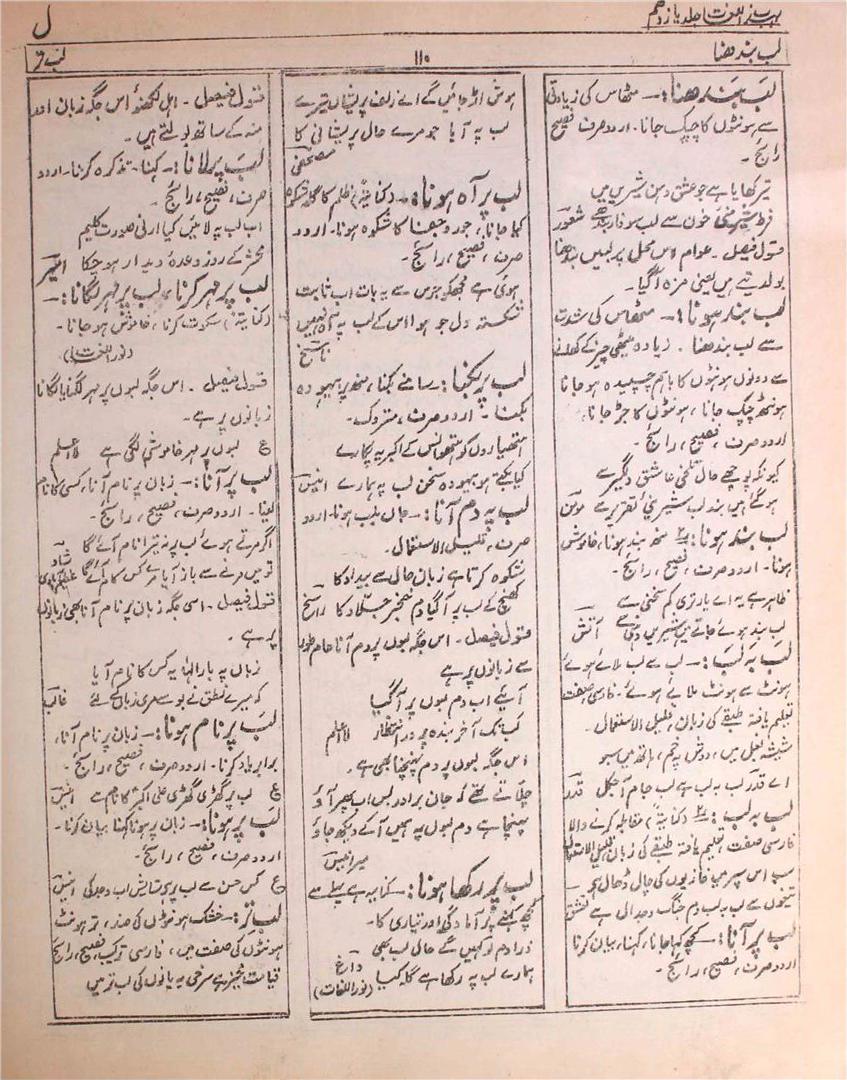 مہذب اللغات جلد یازدہم
ل
لب بندھنا
۱۱۰
لب تر
لب بندھنا:۔ مٹھاس کی زیادتی
سے ہونٹوں کا چپک جانا۔ اردو صرف، فصیح
رائج۔
تیر کھایا ہے جو عشق دہن شیریں میں
فرط شیرینئ خوں سے لب سوفار بندھے شعور
قول فیصل۔ عوام اس محل پر لبیں بندھنا
بولدیتے ہیں یعنی مزہ آگیا۔
لب بند ہونا:۔ مٹھاس کی شدت
سے لب بندھنا۔ زیادہ میٹھی چیز کے کھانے
سے دونوں ہونٹوں کا باہم چسپیدہ ہو جانا
ہونٹھ چپک جانا، ہونٹوں کا جڑ جانا،
اردو صرف، فصیح، رائج۔
کیونکہ پوچھے حال تلخی عاشق دلگیر سے
ہو گئے ہیں بند لب شیرینئ تقریر سے مومن
لب بند ہونا:۲ منہ بند ہونا، خاموش
ہونا۔ اردو صرف، فصیح، رائج۔
ظاہر ہے یہ اے یار تری کم سخنی سے
لب بند ہوئے جاتے ہیں شیریں دہنی سے آتش
لب بہ لب:۔ لب سے لب ملائے ہوئے
ہونٹ سے ہونٹ ملائے ہوئے۔ فارسی صفت
تعلیم یافتہ طبقے کی زبان، قلیل الاستعمال۔
شیشہ بغل میں، دوش پہ خم، ہاتھ میں سبو
اے قدر لب بہ لب ہے لب جام آجکل قدر
لب بہ لب:۲ (کنایۃً) مقابلہ کرنے والا
فارسی صفت تعلیم یافتہ طبقے کی زبان قلیل الاستعمال
سب اس سپر میں غازیوں کی چال ڈھال ہے
تیغوں سے لب بہ لب دم جنگ و جدال ہے تعشق
لب پر آنا:۔ کچھ کہا جانا، کہنا، بیان کرنا
اردو صرف، فصیح، رائج۔
ہوش اڑ جائیں گے اے زلف پریشاں تیرے
لب پہ آیا جو مرے حال پریشانی کا
مصحفی
لب پر آہ ہونا:۔ (کنایۃً) ظلم کا گلہ شکوہ
کیا جانا، جور و جفا کا شکوہ ہونا۔ اردو
صرف، فصیح، رائج۔
ہوئی ہے مجھکو جرس سے یہ بات اب ثابت
شکستہ دل جو ہوا اس کے لب پہ آہ نہیں
ناسخ
لب پر بکنا:۔ سامنے بکنا، منھ پر بیہودہ
بکنا۔ اردو صرف، متروک۔
ہتھیاروں کو منھ انس کے اکبر یہ پکارے
کیا بکتے ہو بیہودہ سخن لب پہ ہمارے انیس
لب پہ دم آنا:۔ جاں بلب ہونا۔ اردو
صرف، قلیل الاستعمال۔
شکوہ کرتا ہے زبان حال سے بیداد کا
کھنچ کے لب پر آگیا دم خنجر جلاد کا راسخ
قول فیصل۔ اس جگہ لبوں پر دم آنا عام طور
سے زبانوں پر ہے
آئیے اب دم لبوں پر آگیا
کب تک آخر بندہ پرور انتظار لا اعلم
اس جگہ لبوں پر دم پہنچنا بھی ہے۔
چلاتے تھے کہ جان برادر بس اب پھر آؤ
پہنچا ہے دم لبوں پہ ہمیں آ کے دیکھ جاؤ
میر انیس
لب پر رکھا ہونا:۔ کنایہ ہے پہلے سے
کچھ کہنے پر آمادگی اور تیاری کا۔
ذرا دم لو کہیں گے حال لب بھی
ہمارے لب پہ رکھا ہے گلہ کیا داغ
(نور اللغات)
قول فیصل۔ اہل لکھنؤ اس جگہ زبان اور
منہ کے ساتھ بولتے ہیں۔
لب پر لانا:۔ کہنا۔ تذکرہ کرنا۔ اردو
صرف، فصیح، رائج۔
اب لب پہ لائیں کیا ارنی صورت کلیم
محشر کے روز وعدۂ دیدار ہو چکا امیر
لب پر مہر کرنا، لب پر مہر لگانا:۔
(کنایۃً) سکوت کرنا، خاموش ہو جانا۔
(نور اللغات)
قول فیصل۔ اس جگہ لبوں پر مہر لگنا یا لگانا
زبانوں پر ہے۔
ع لبوں پر مہر خاموشی لگی ہے لا اعلم
لب پر آنا:۔ زبان پر نام آنا، کسی کا نام
لینا۔ اردو صرف، فصیح، رائج۔
اگر مرتے ہوئے لب پر نہ تیرا نام آئے گا
تو میں مرنے سے باز آیا مرے کس کام آئے گا شاد عظیم آبادی
قول فیصل۔ اسی جگہ زبان پر نام آنا بھی زبانوں
پر ہے۔
زباں پہ بار الٰہا یہ کس کا نام آیا
کہ میرے نطق نے بوسے مری زباں کے لئے غالب
لب پر نام ہونا:۔ زبان پر نام آنا،
برابر یاد کرنا۔ اردو صرف، فصیح، رائج۔
ع لب پر گھڑی گھڑی علی اکبر کا نام ہے انیس
لب پر ہونا:۔ زبان پر ہونا کہنا بیان کرنا۔
اردو صرف، فصیح، رائج۔
ع کس حسن سے لب پر ہے ستایش اب و جد کی انیس
لب تر:۔ خشک ہونٹوں کی ضد، تر ہونٹ
ہونٹوں کی صفت میں، فارسی ترکیب فصیح، رائج
قیامت خیز ہے سرخی یہ پانوں کی لب تر میں